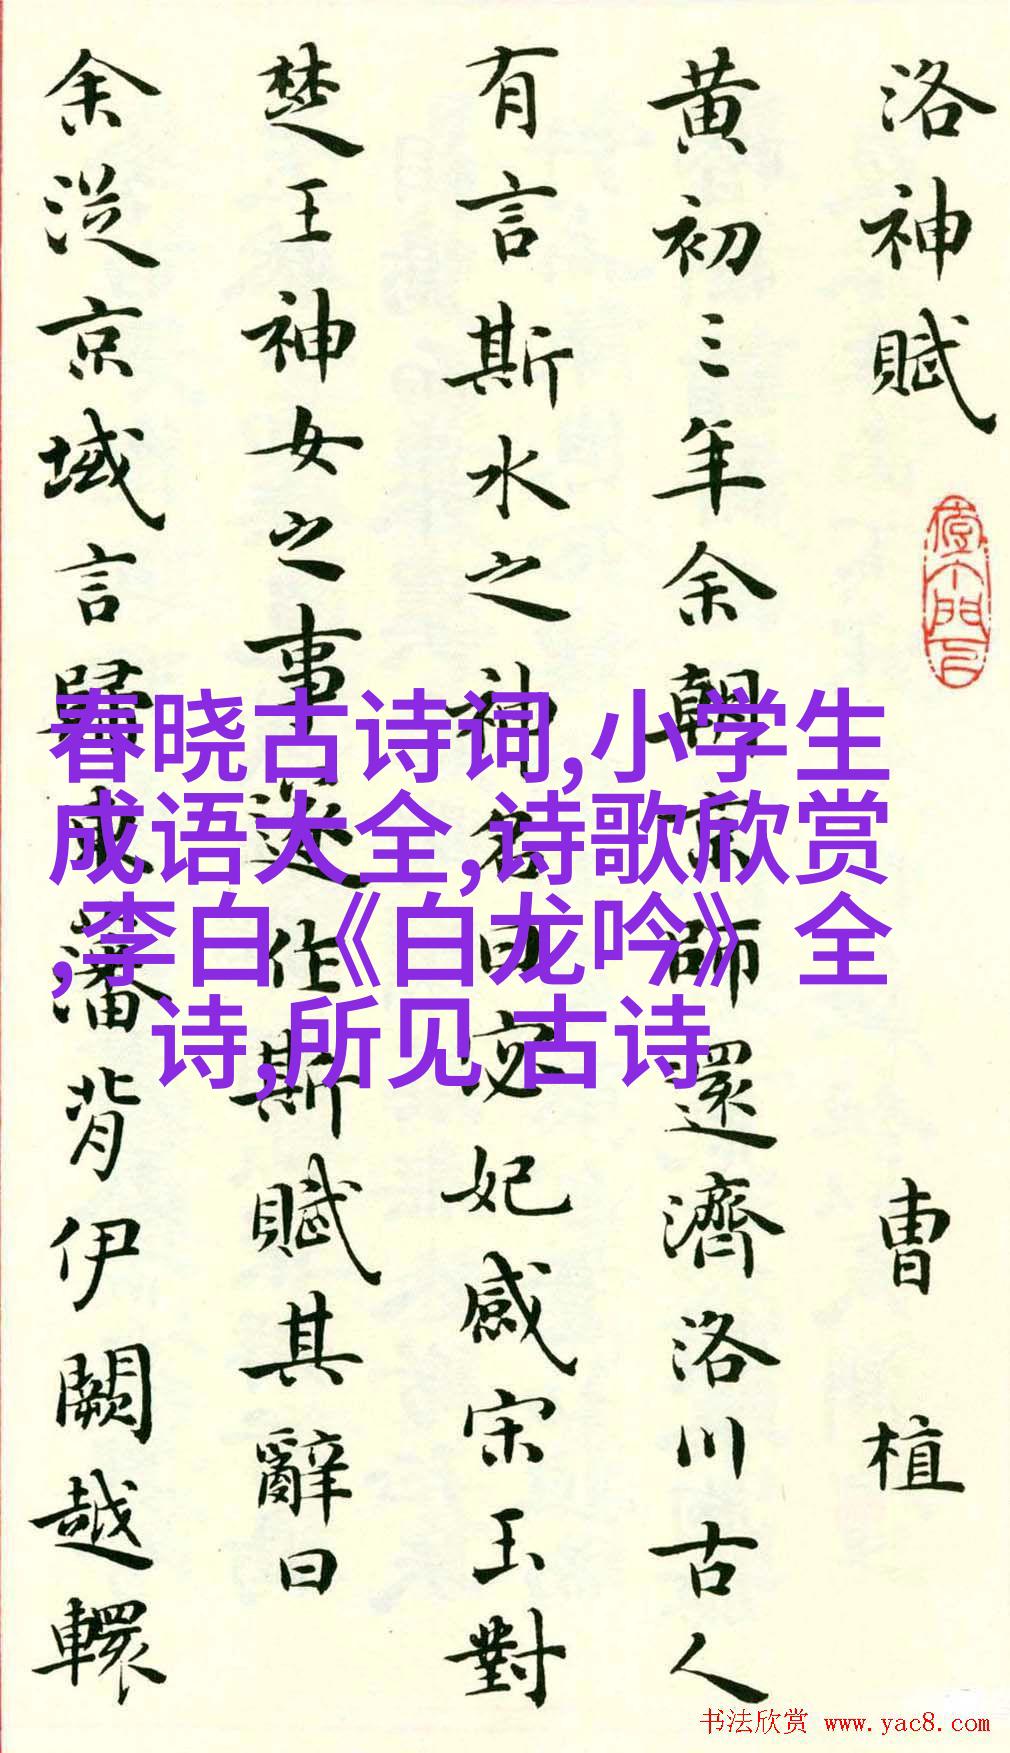 洛神賦
曹植
黄初三年余朝京師還濟洛川古人
有言斯水之神名曰宓妃感宋玉對
楚王神女之事遂作斯賦其辭曰
余從京域言歸東藩背伊闕越轘
春晓古诗词,小学生
成语大全,诗歌欣赏
,李白《白龙吟》全
诗,所见 古诗
书法欣赏 www.yac8.com